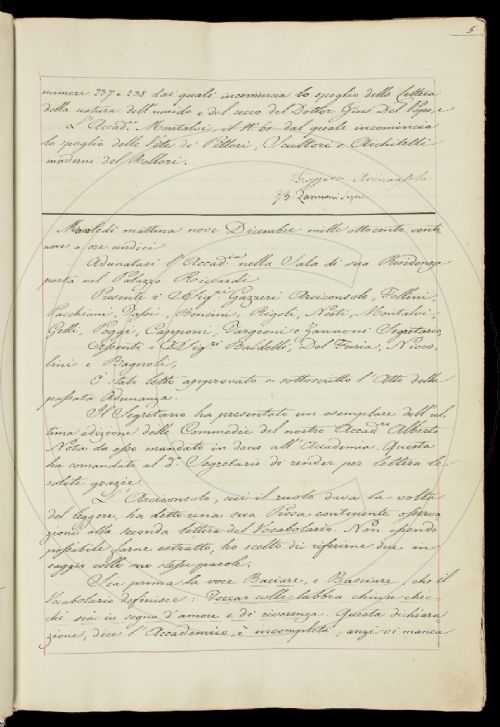 5
numeri 237 e 238 dai quali incomincia lo spoglio della Lettera
della natura dell'umido e del secco del Dottor Gius. Del Papa, e
L'Accad. Montalvi, il N. 60 dal quale incomincia
lo spoglio delle Vite de' Pittori, Scultori e Architetti
moderni del Bellori.
Gazzeri Arciconsolo
G. B. Zannoni Segr.
Mercoledì mattina nove Dicembre mille ottocento venti
nove a ore undici
Adunatasi l'Accad.ia nella Sala di sua Residenza
posta nel Palazzo Riccardi
Presenti i SS.ri Gazzeri Arciconsolo, Follini,
Sacchiani, Bencini, Rigoli, Nesti, Montalvi,
Gelli, Poggi, Capponi, e Zannoni Segretario
Assenti i SS.ri Baldelli, Del Furia, Nicco-
lini e Bagnoli,
È stato letto approvato e sottoscritto l'Atto della
passata Adunanza.
Il Segretario ha presentato un esemplare dell'ul-
tima edizione delle Commedie del nostro Accad.co Alberto
Nota da esso mandato in dono all'Accademia. Questa
ha comandato al d.o Segretario di render per lettera le
solite grazie.
L'Arciconsolo, cui il ruolo dava la volta
del leggere, ha detto una sua Prosa contenente osserva
zioni alla seconda lettera del Vocabolario. Non essendo
possibile farne estratto, ho scelto di riferirne due in
saggio colle sue stesse parole.
Sia prima la voce Baciare, o Basciare, che il
Vocabolario definisce: Toccar colle labbra chiuse chec-
chè sia in segno d'amore e di riverenza. Questa dichiara-
zione, dice l'Accademico, è incompleta; anzi vi manca